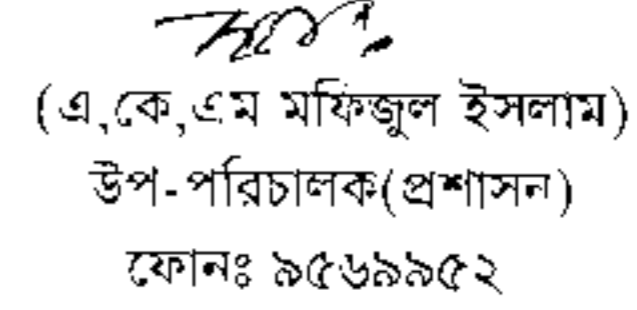 (এ,কে,এম মফিজুল ইসলাম)
উপ-পরিচালক(প্রশাসন)
ফোনঃ ৯৫৬৯৯৫২